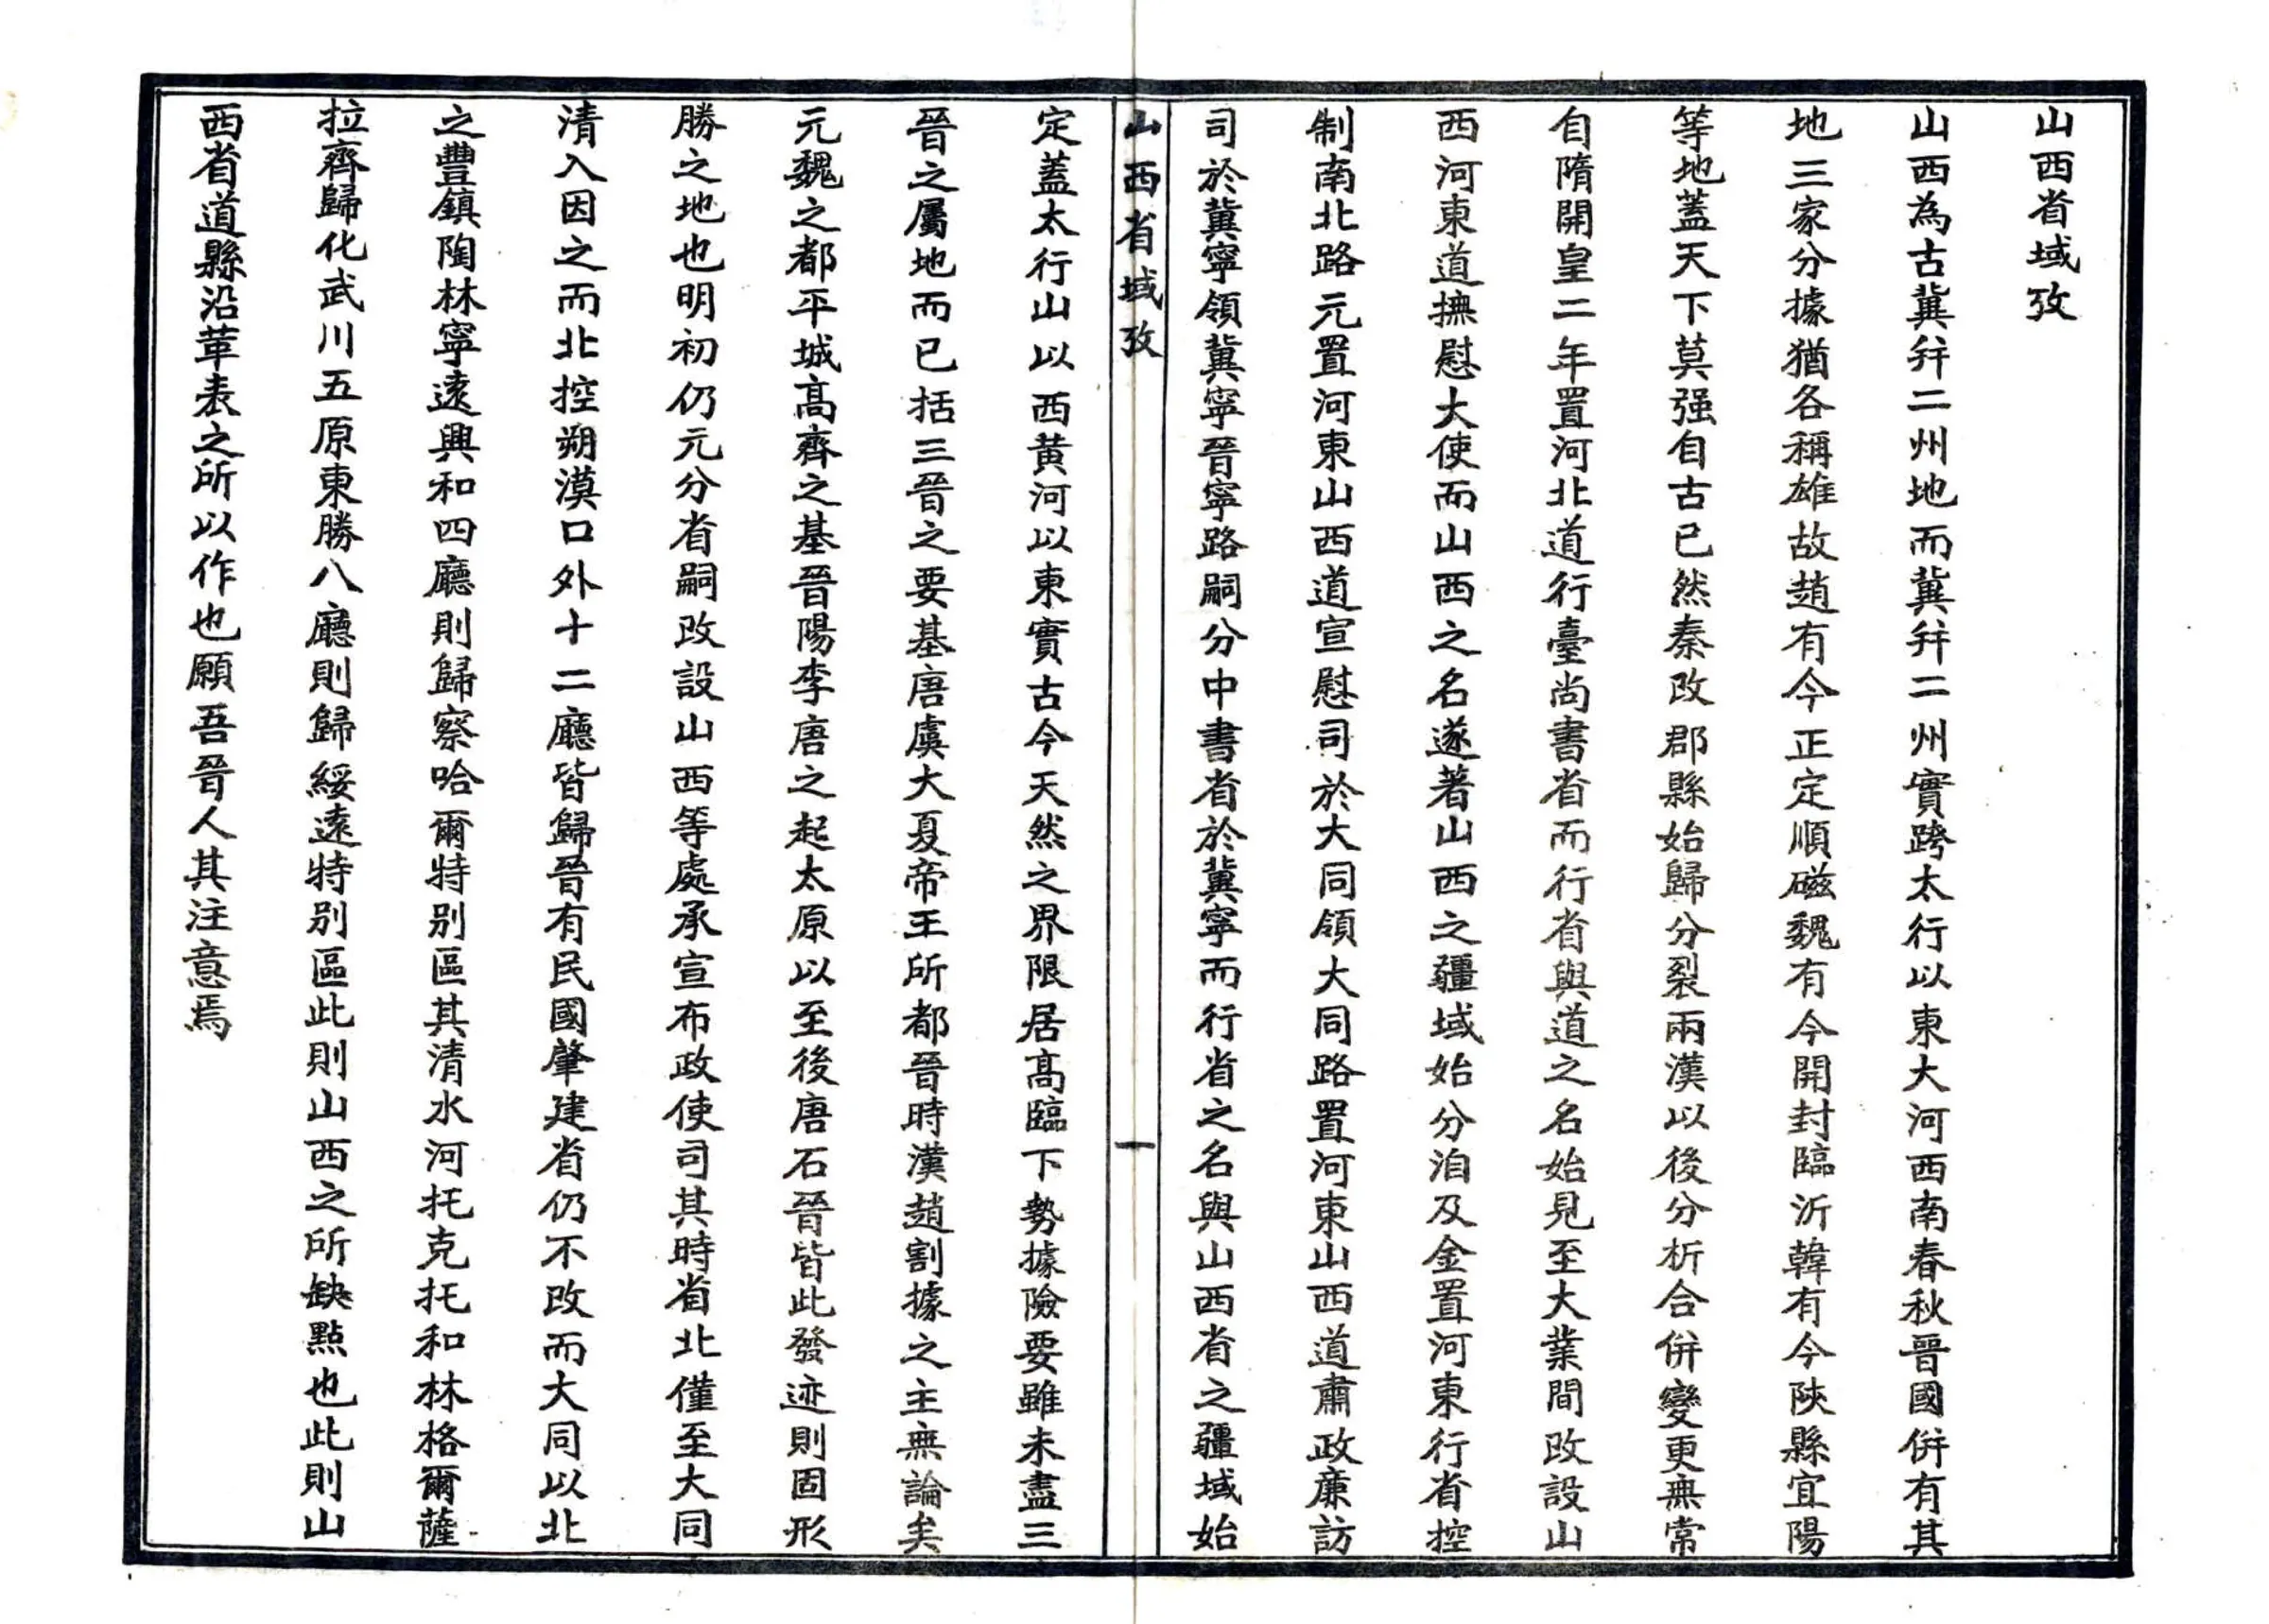 山西省域攷
山西為古冀并二州地而冀并二州實跨太行以東大河西南春秋晉國併有其
地三家分據猶各稱雄故趙有今正定順磁魏有今開封臨沂韓有今陝縣宜陽
等地蓋天下莫强自古已然秦改郡縣始歸分裂兩漢以後分析合併變更無常
自隋開皇二年置河北道行臺尚書省而行省與道之名始見至大業間改設山
西河東道撫慰大使而山西之名遂著山西之疆域始分洎及金置河東行省控
制南北路元置河東山西道宣慰司於大同領大同路置河東山西道肅政廉訪
司於冀寧領冀寧晉寧路嗣分中書省於冀寧而行省之名與山西省之疆域始
山西省域攷
一
定蓋太行山以西黃河以東實古今天然之界限居高臨下勢據險要雖未盡三
晉之屬地而已括三晉之要基唐虞大夏帝王所都晉時漢趙割據之主無論矣
元魏之都平城高齊之基晉陽李唐之起太原以至後唐石晉皆此發迹則固形
勝之地也明初仍元分省嗣改設山西等處承宣布政使司其時省北僅至大同
清入因之而北控朔漠口外十二廳皆歸晉有民國肇建省仍不改而大同以北
之豐鎮陶林寧遠興和四廳則歸察哈爾特別區其清水河托克托和林格爾薩
拉齊歸化武川五原東勝八廳則歸綏遠特別區此則山西之所缺點也此則山
西省道縣沿革表之所以作也願吾晉人其注意焉